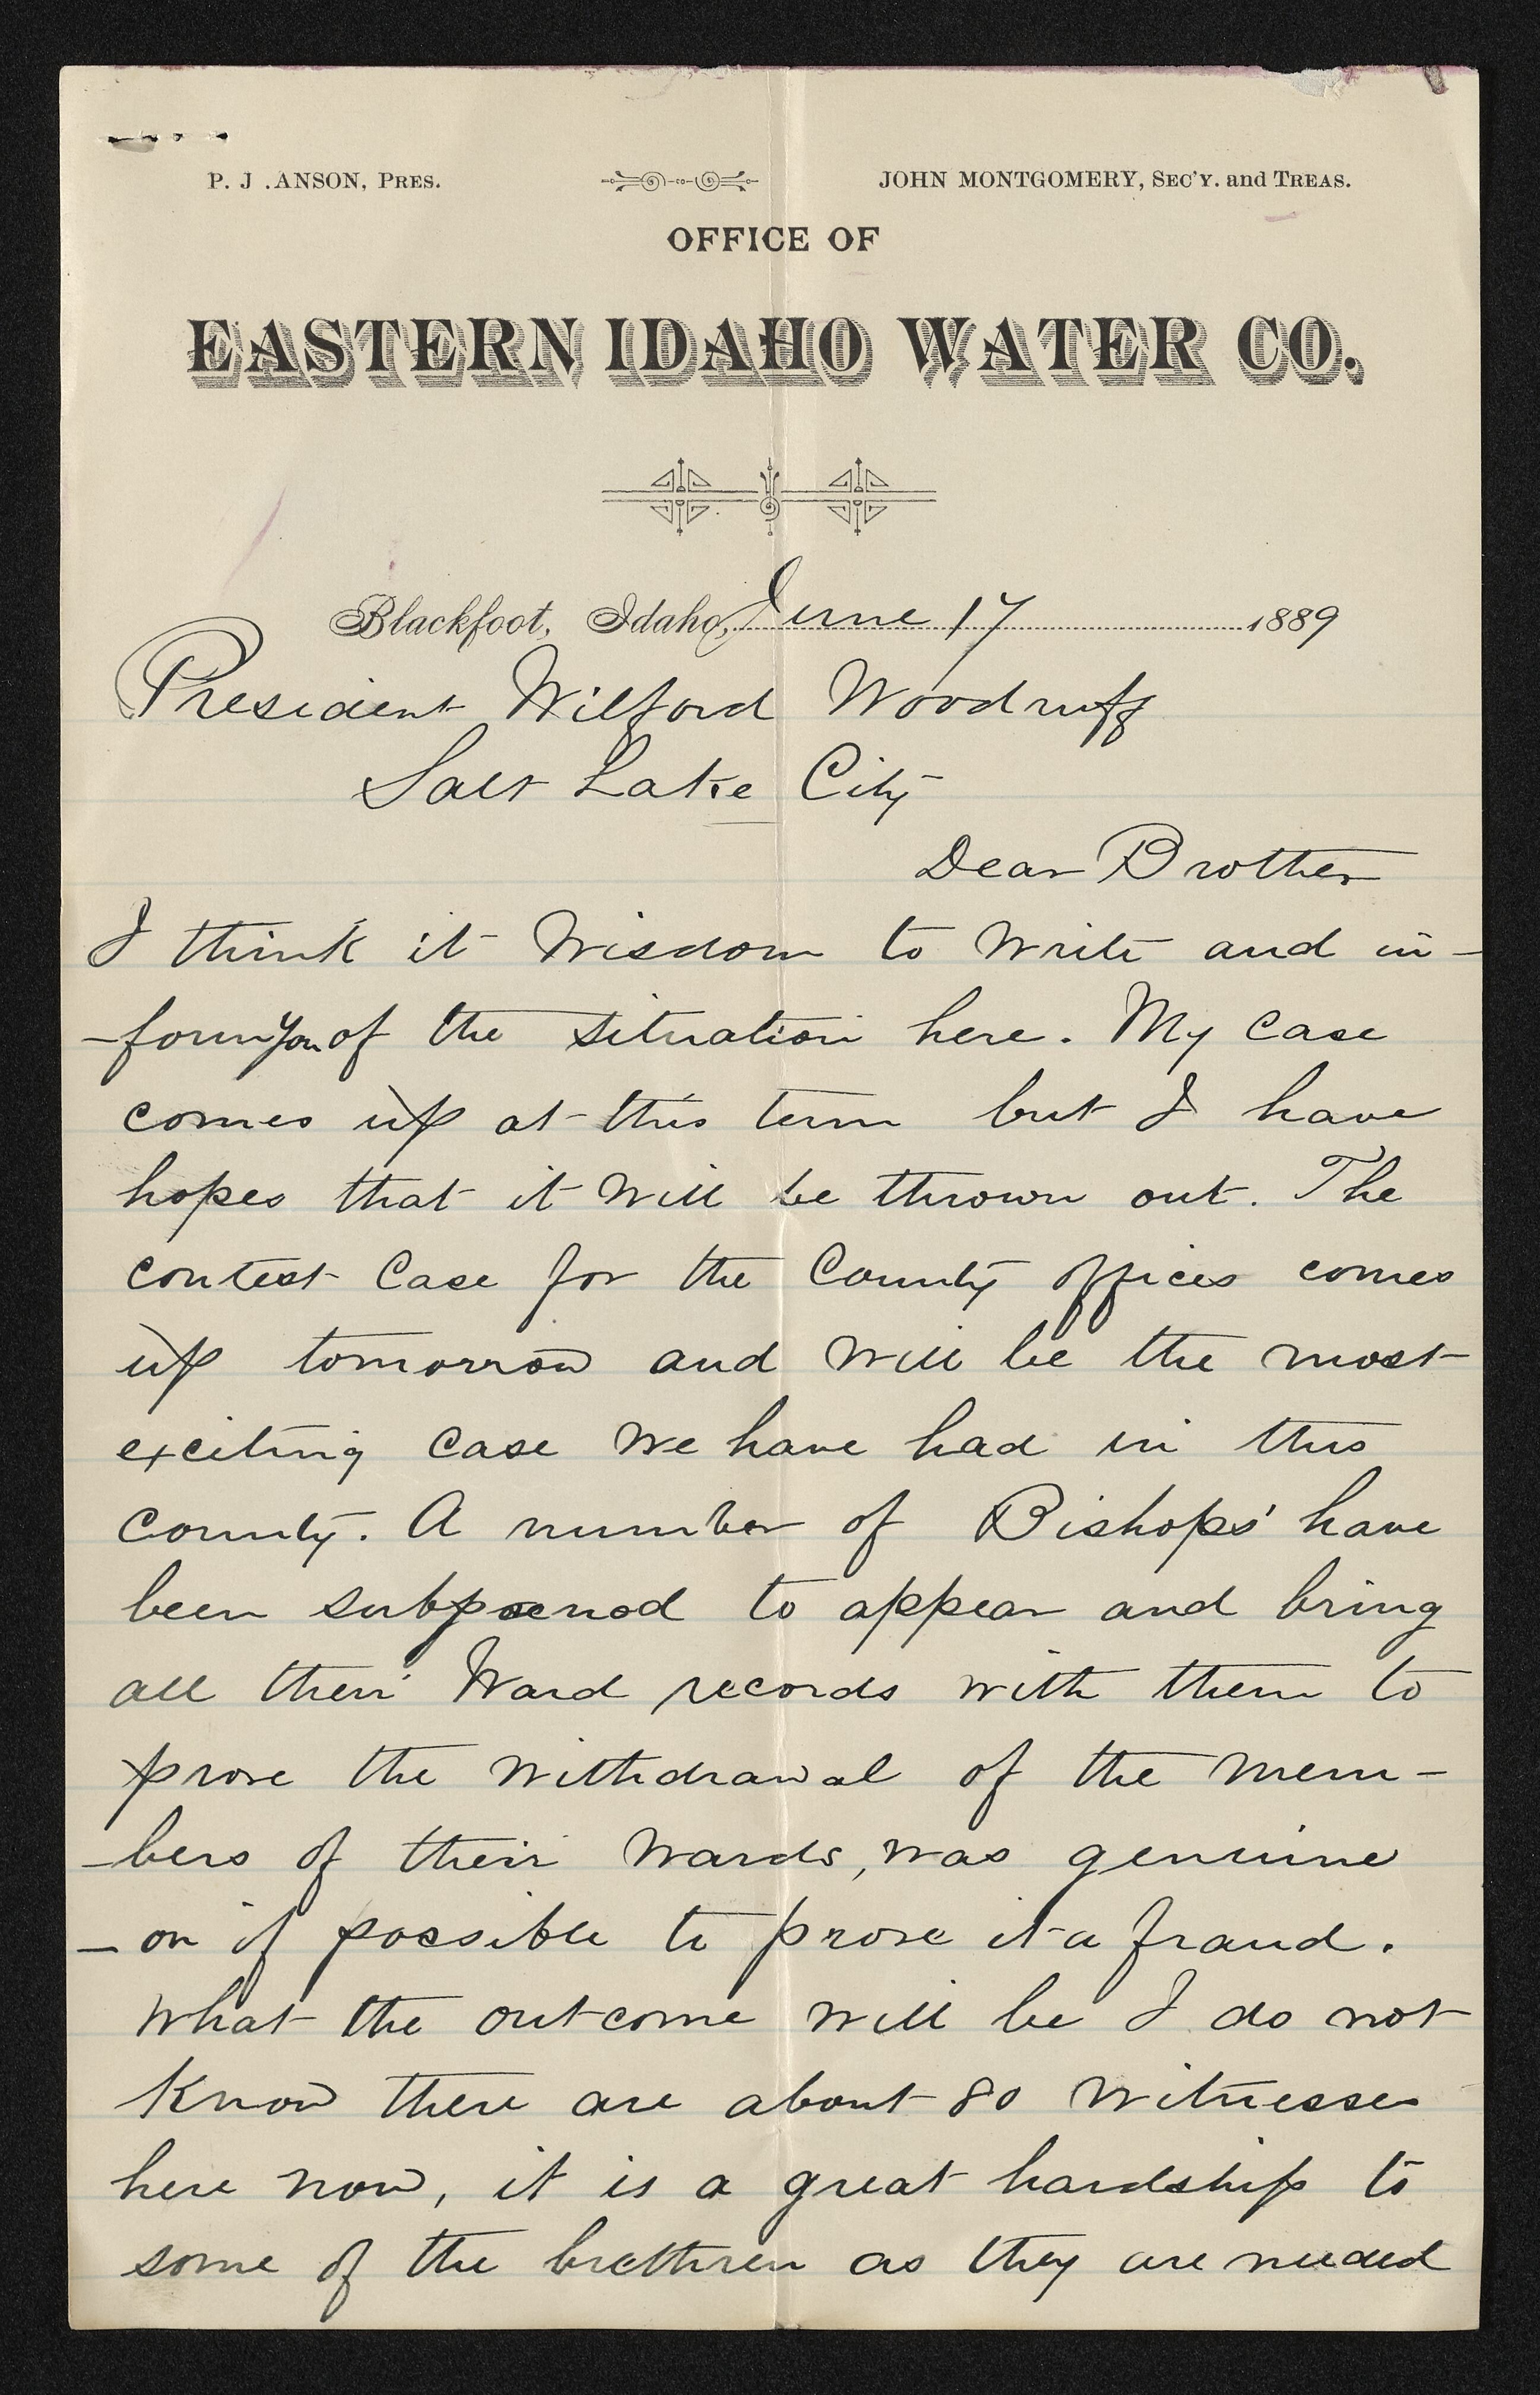 P. J .ANSON, PRES.
JOHN MONTGOMERY, SEC'Y. and TREAS.
OFFICE OF
EASTERN IDAHO WATER CO.
Blackfoot, Idaho, June 17 1889
President Wilford Woodruff
Salt Lake City
Dear Brother
I think it Wisdom to Write and in-
-form you of the situation here. My case
comes up at this term but I have
hopes that it Will be thrown out. The
contest Case for the County offices comes
up tomorrow and Will be the most
exciting Case We have had in this
County. A number of Bishops' have
been subpoenod to appear and bring
all their Ward records with them to
prove the Withdrawal of the mem-
-bers of their Wards, was genuine
- or if possible to prove it a fraud.
What the outcome Will be I do not
Know there are about 80 Witnesses
here now, it is a great hardship to
some of the brethren as they are needed